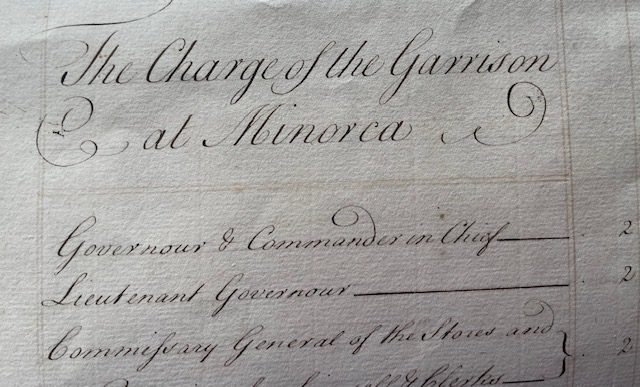 The Charge of the Garrison
at Minorca
Governour & Commander in Chief 2
Lieutenant Governour 2
Commiſsary General of the Stores and 2
& Clerks